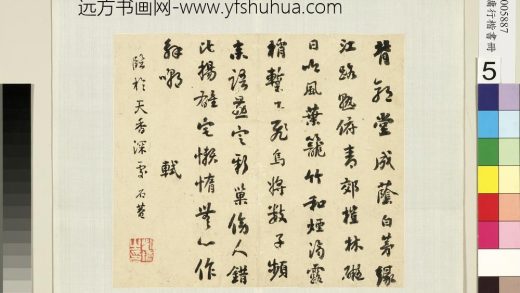 远方书画网-www.yfshuhua.com
背郭堂成蔭白茅緣
江路熟俯青郊榿林礙
日吟風葉籠竹和煙滴露
梢暫下飛烏將數子頻
來語燕定新巢傷人錯
比揚雄宅懶惰無心作
解嘲 軾
臨於天香深處 石菴
005887
墉行楷書冊
5